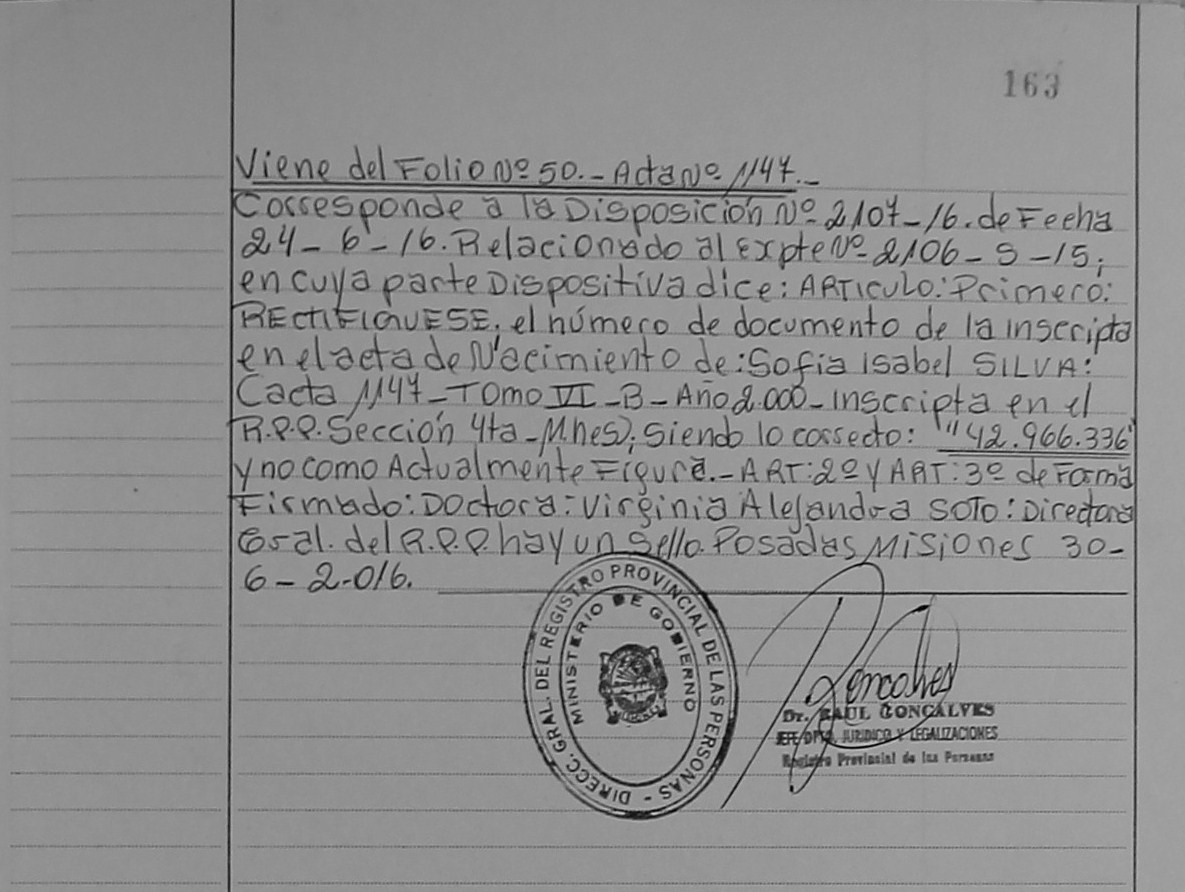 163
Viene del Folio Nº 50.- Acta Nº 1147.-
Corresponde a la Disposición Nº 2107-16. de Fecha
24-6-16. Relacionado al Expte Nº 2106-S-15;
en cuya parte Dispositiva dice: ARTICULO: Primero:
RECTIFIQUESE. el número de documento de la inscripta
en el acta de Nacimiento de: Sofia Isabel SILVA:
Cacta 1147-TOMO VI-B-Año 2.000-Inscripta en el
R.P.P. Sección 4ta-Mnes); siendo lo correcto: "42.966.336"
y no como Actualmente Figura.- ART: 2º Y ART: 3º de Forma
Firmado: Doctora: Virginia Alejandra SOTO: Directora
Gral. del R.P.P. hay un Sello. Posadas Misiones 30-
6-2.016.
DIRECC. GRAL. DEL REGISTRO PROVINCIAL DE LAS PERSONAS -
MINISTERIO DE GOBIERNO
Goncalves
Dr. RAUL GONCALVES
JEFE DPTO. JURIDICO Y LEGALIZACIONES
Registro Provincial de las Personas